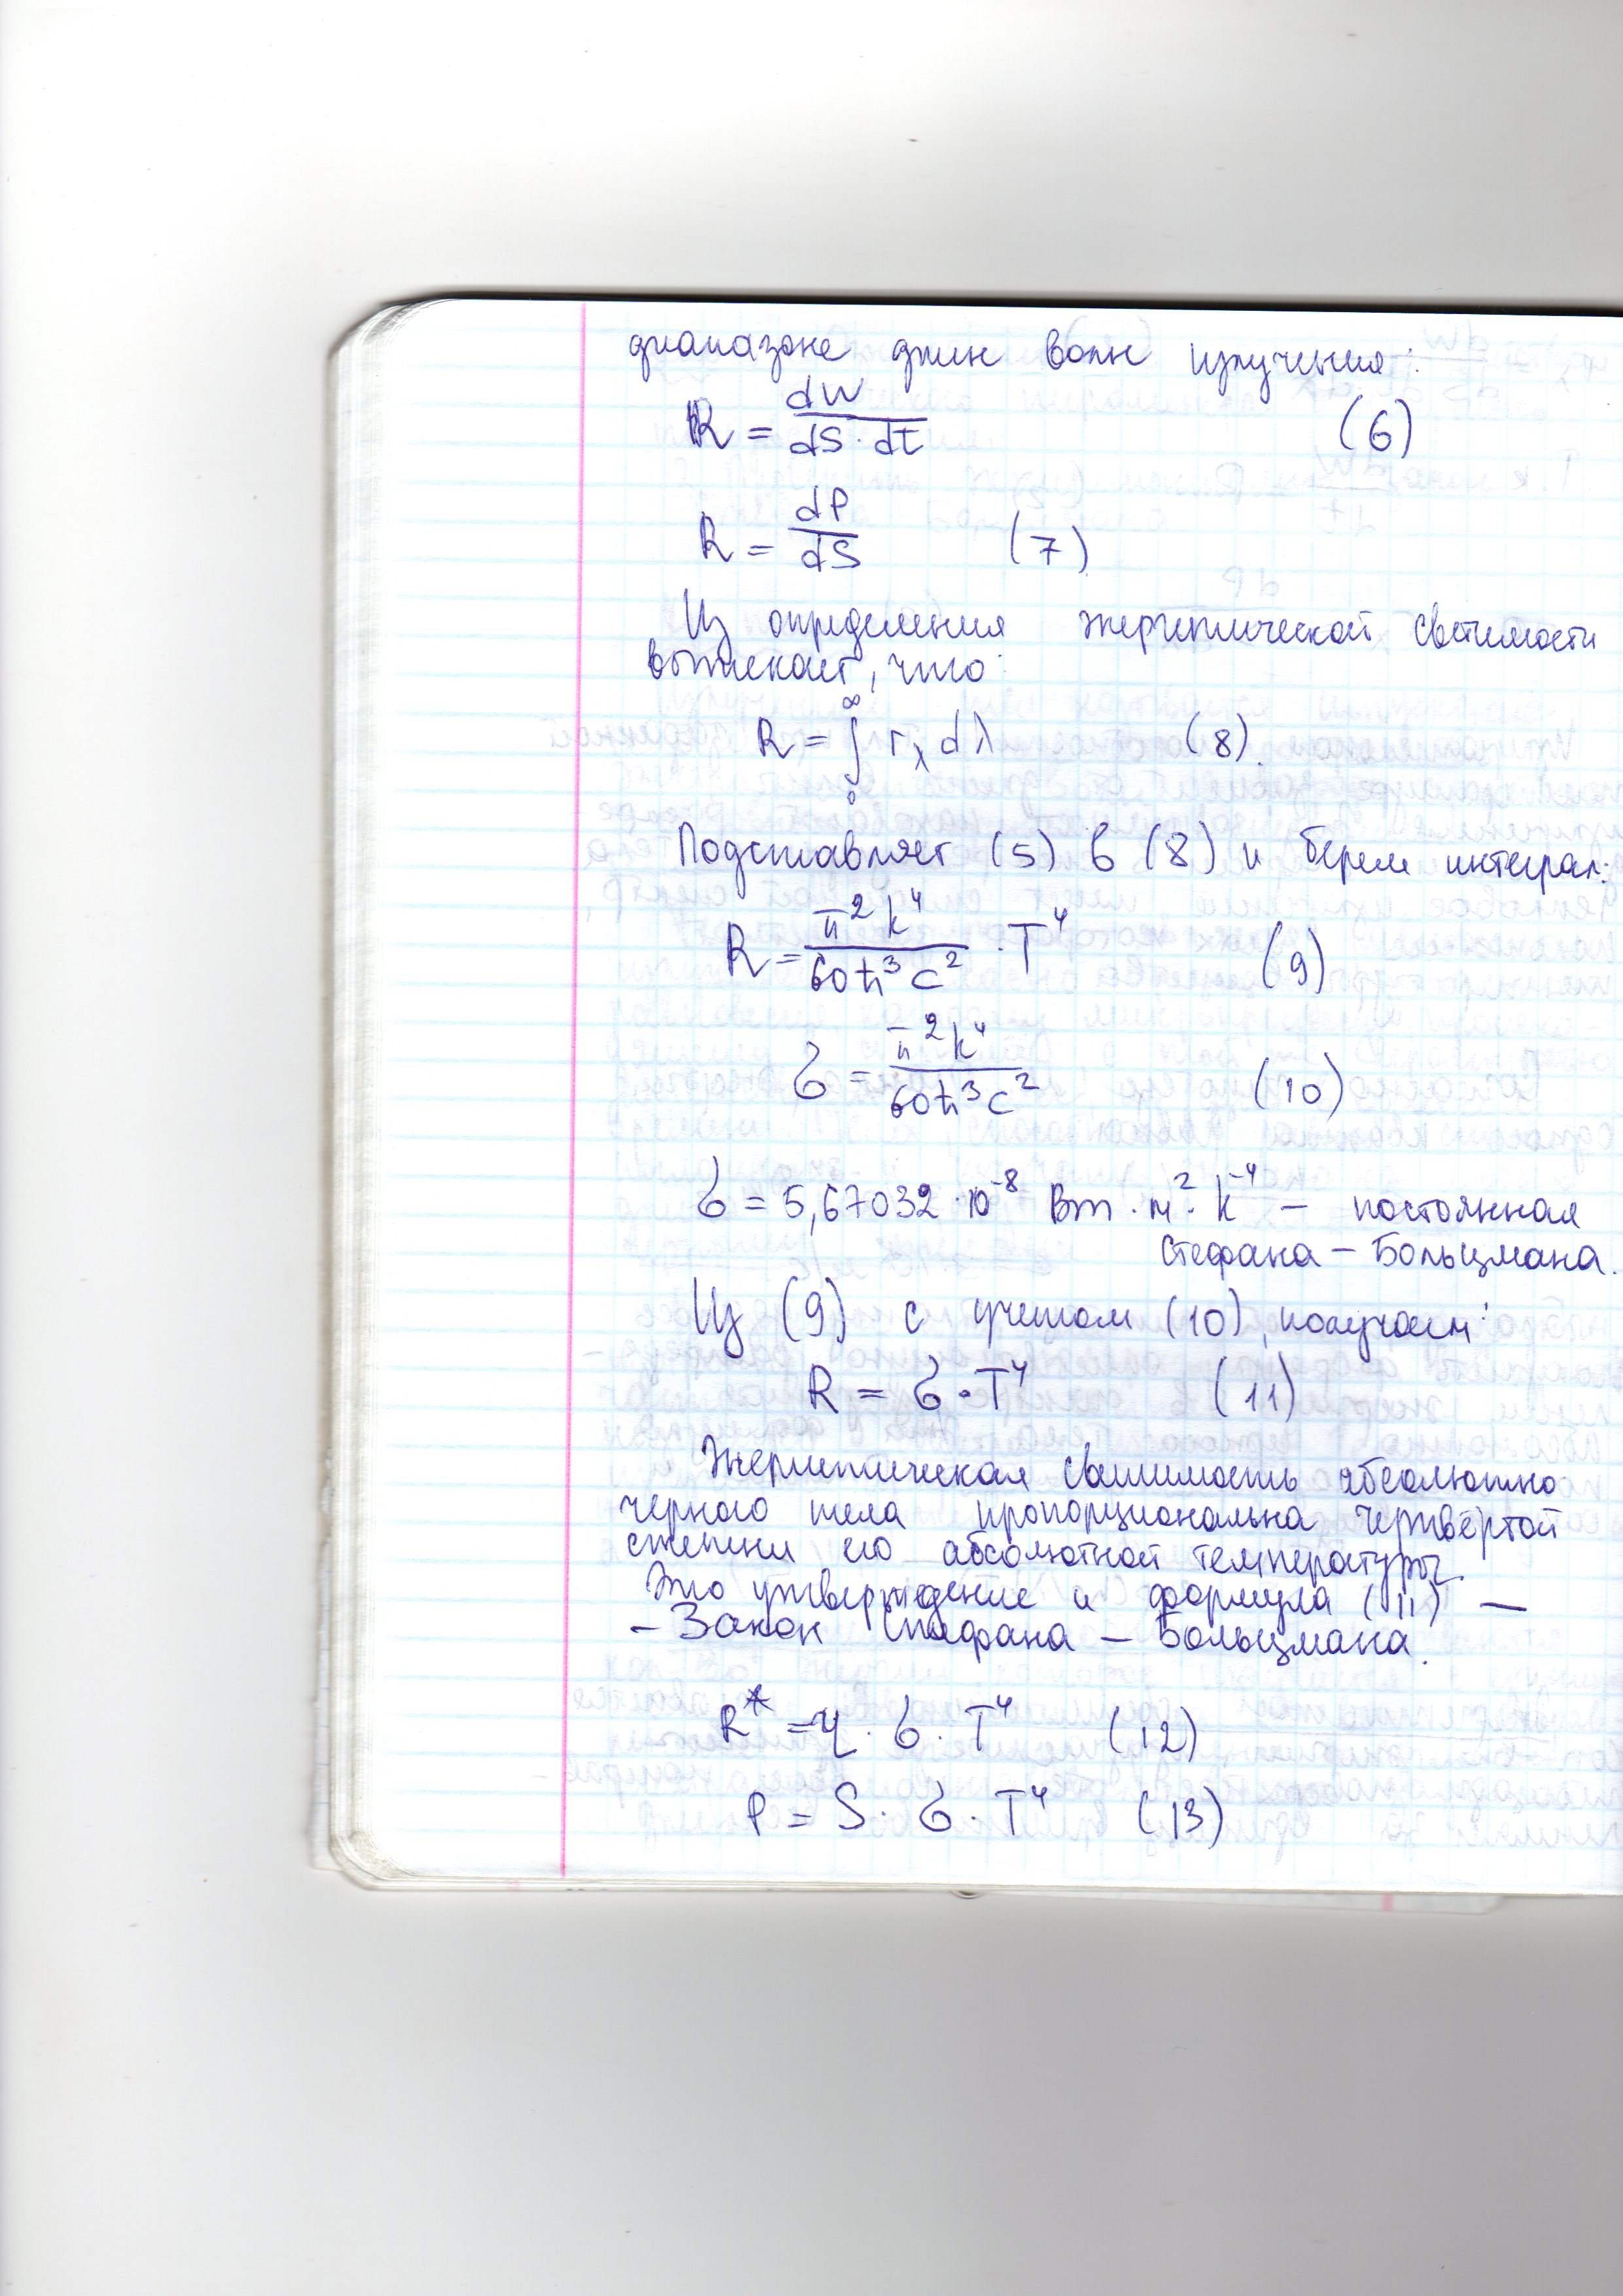 диапазоне длин волн излучения:
R = dW / dS · dt (6)
R = dP / dS (7)
Из определения энергетической светимости
вытекает, что:
R = ∫₀^∞ r_λ dλ (8).
Подставляет (5) в (8) и берем интеграл:
R = π² k⁴ / 60 ħ³ c² · T⁴ (9)
σ = π² k⁴ / 60 ħ³ c² (10)
σ = 5,67032 · 10⁻⁸ Вт · м² · k⁻⁴ – постоянная
Стефана – Больцмана.
Из (9) с учетом (10), получаем:
R = σ · T⁴ (11)
Энергетическая светимость абсолютно
черного тела пропорциональна четвёртой
степени его абсолютной температуры.
Это утверждение и формула (11) —
– Закон Стефана – Больцмана.
R* = η · σ · T⁴ (12)
P = S · σ · T⁴ (13)